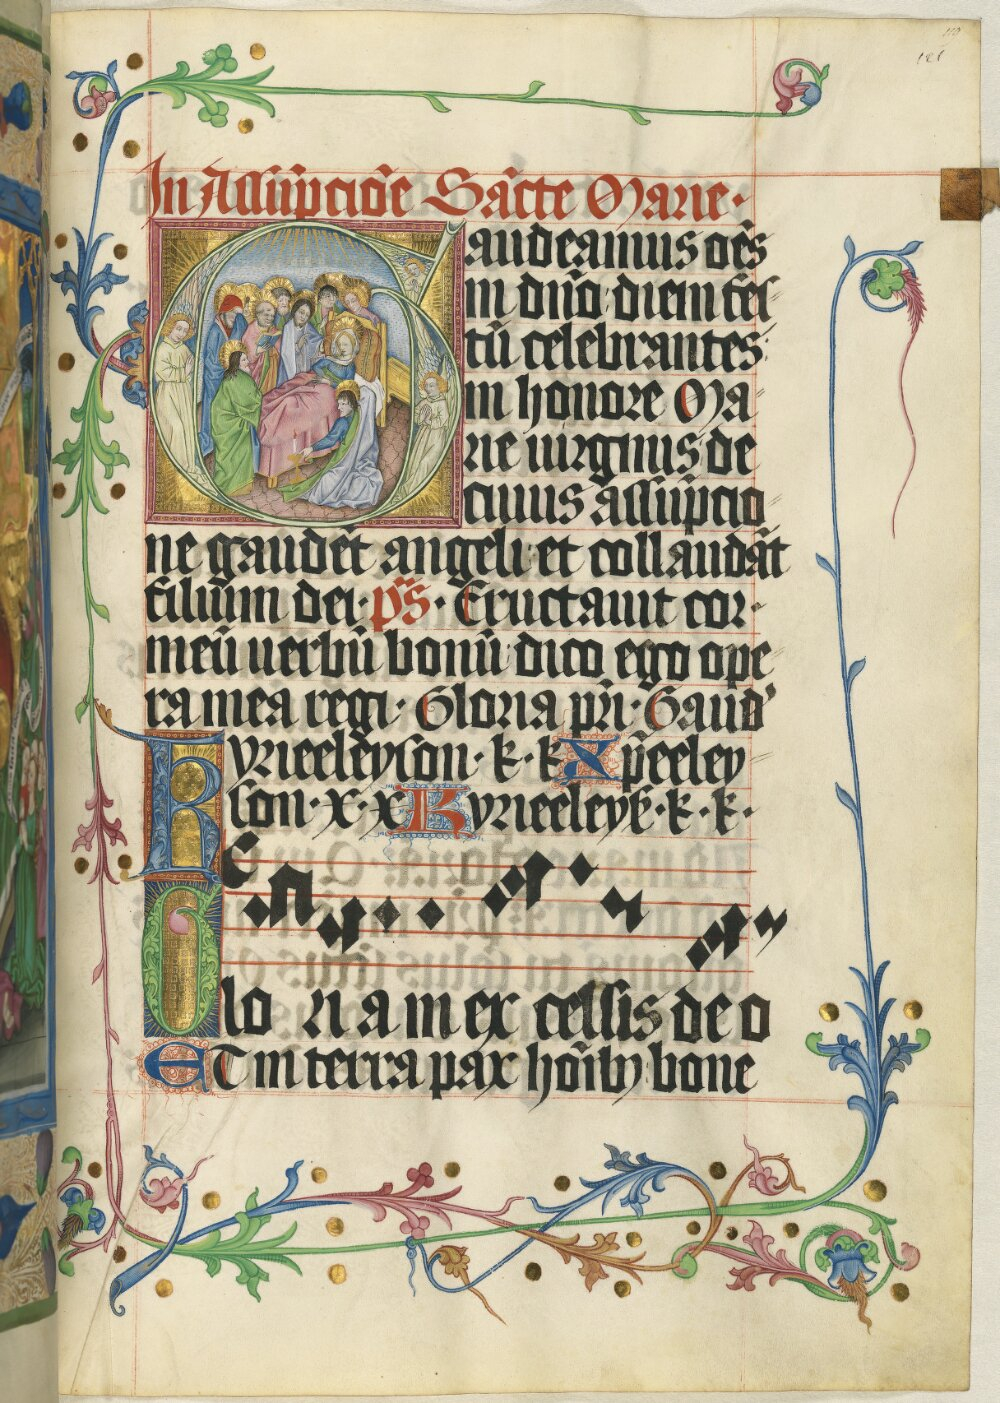 In Assūpcioē Sācte Marie·
Gaudeamus oēs
in dn̄o diem fes
tū celebrantes
in honore Ma
rie uirginis de
cuius assūpcio
ne gaudēt angeli et collaudāt
filium dei· ps̄· Eructauit cor·
meū uerbū bonū dico ego ope
ra mea regi· Gloria pr̄i· Gaud'
Kyrieeleyson· k· k Xp̄eeley
son· x· x Kyrieeleyß· k· k·
Glo ri a in ex celsis de o
ET in terra pax hoīb9 bone